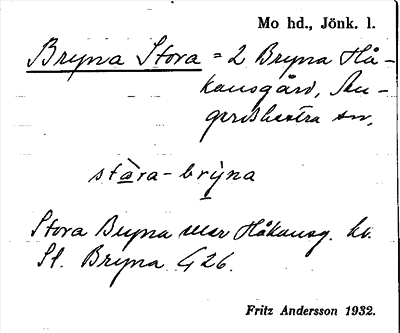 Mo hd., Jönk. l.
Bryna Stora = 2 Bryna Hå-
kansgård, An-
gerdshestra sn,
stàra-brỳna
Stora Bryna eller Håkansg. hv.
St. Bryna G 26.
Fritz Andersson 1932.